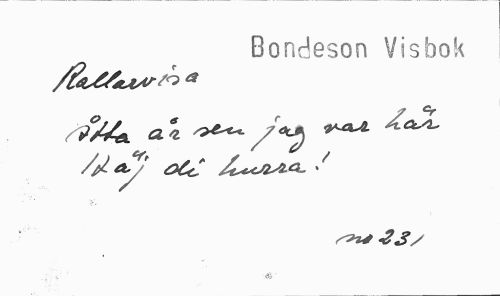 Bondeson Visbok
Rallarvisa
Åtta år sen jag var här
Häj di hurra!
no 231